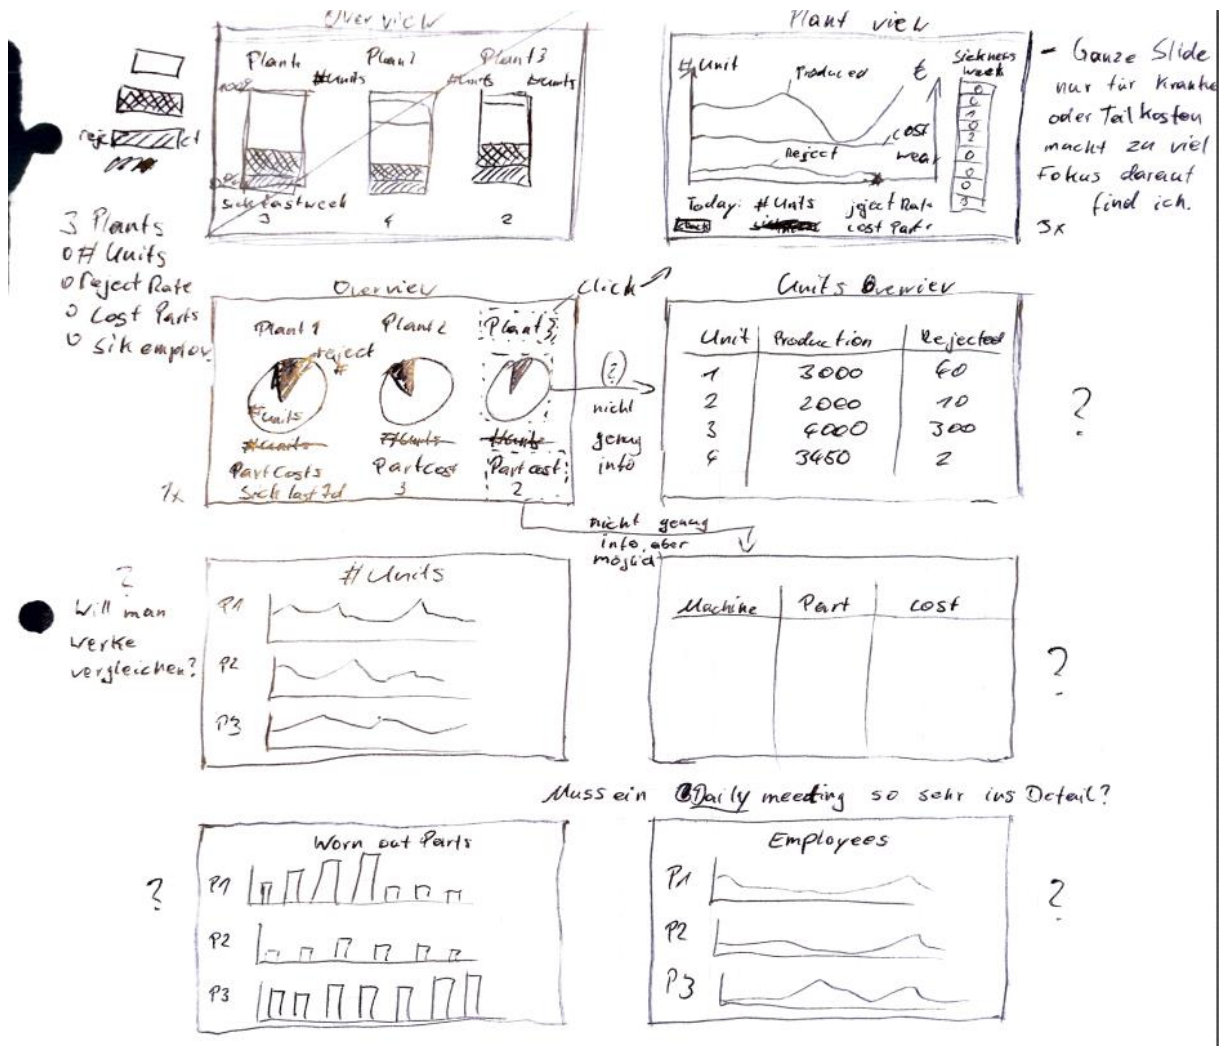 Overview
Plant 1
Plant 2
Plant 3
# Units
# Units
# Units
100%
0%
reject
sick last week
3
4
2
3 Plants
# Units
reject Rate
Cost Parts
sik employ.
Plant view
# Unit
Produced
€
Sickness
week
0
0
1
0
2
0
0
0
3
cost
wear
Reject
Today:
# Units
reject Rate
cost Part
Back
- Ganze Slide
nur für Kranke
oder Teilkosten
macht zu viel
Fokus darauf
find ich.
3x
Overview
Click
Plant 1
Plant 2
Plant 3
reject
#
# Units
# Units
# Units
# Units
Part Costs
Part Cost
Part cost
Sick last 7d
3
2
1x
?
nicht
genug
info
Units Overview
Unit
Production
Rejected
1
3000
40
2
2000
10
3
4000
300
4
3450
2
?
nicht genug
info, aber
möglich
?
Will man
Werke
vergleichen?
# Units
P1
P2
P3
Machine
Part
cost
?
Muss ein Daily meeting so sehr ins Detail?
?
Worn out Parts
P1
P2
P3
Employees
P1
P2
P3
?